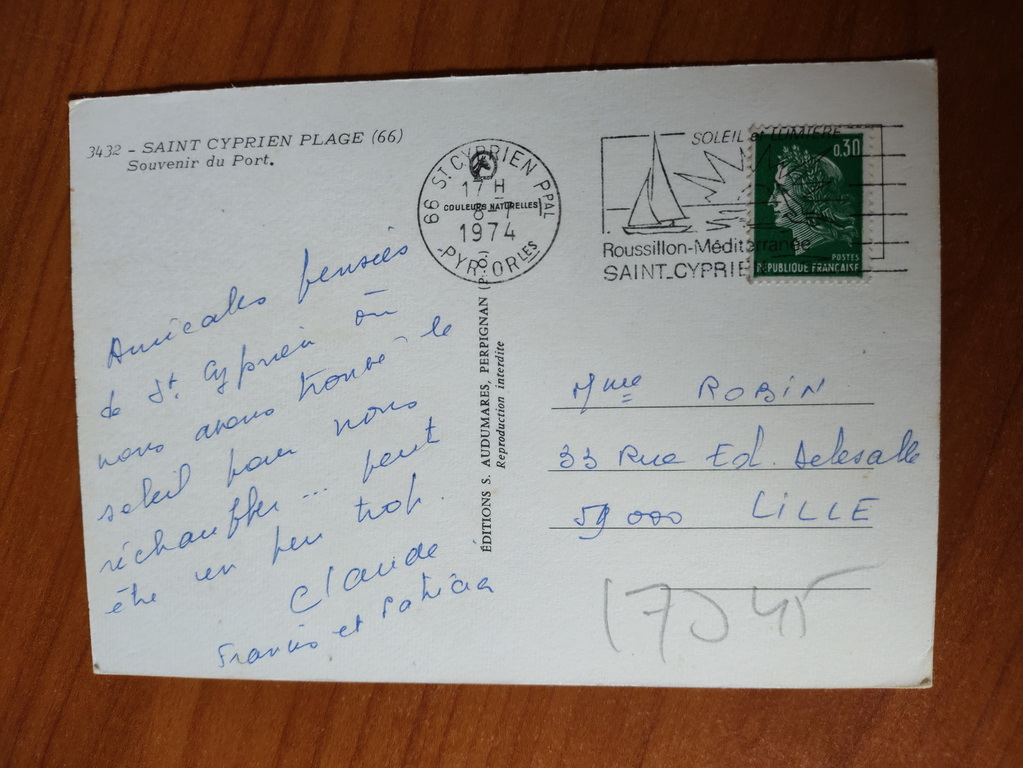 3432 - SAINT CYPRIEN PLAGE (66)
Souvenir du Port.
66 ST CYPRIEN PPAL
17 H
COULEURS NATURELLES
8-7
1974
PYR. ORLES
SOLEIL et LUMIERE
Roussillon-Méditerranée
SAINT-CYPRIE
0.30
POSTES
REPUBLIQUE FRANÇAISE
Amicales pensées
de St. Cyprien où
nous avons trouvé le
soleil pour nous
réchauffer ... peut
être un peu trop.
Claude
Francis et Patricia
ÉDITIONS S. AUDUMARES, PERPIGNAN (P.-O.)
Reproduction interdite
Mme ROBIN
33 Rue Ed. Delesalle
59 000 LILLE